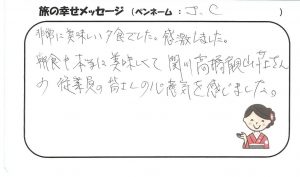 旅の幸せメッセージ (ペンネーム : J.C )
非常に美味しい夕食でした。感激しました。
朝食も本当に美味しくて 関川高橋観山荘さん
の 従業員の皆さんの心意気を感じました。